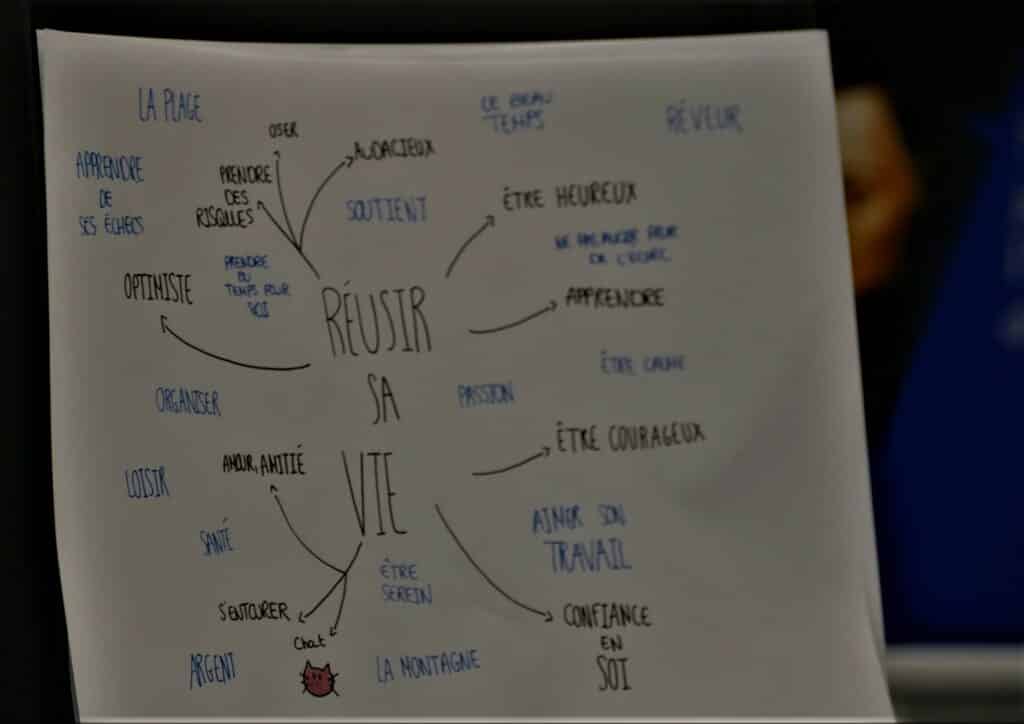 LA PLAGE
LE BEAU
TEMPS
RÊVEUR
OSER
AUDACIEUX
APPRENDRE
DE
SES ÉCHECS
PRENDRE
DES
RISQUES
SOUTIENT
ÊTRE HEUREUX
NE PAS AVOIR PEUR
DE L'ÉCHEC
PRENDRE
DU
TEMPS POUR
SOI
OPTIMISTE
APPRENDRE
RÉUSIR
SA
VIE
ÊTRE CALME
ORGANISER
PASSION
ÊTRE COURAGEUX
AMOUR, AMITIÉ
LOISIR
SANTÉ
AIMER SON
TRAVAIL
ÊTRE
SEREIN
S'ENTOURER
Chat
CONFIANCE
EN
SOI
ARGENT
LA MONTAGNE